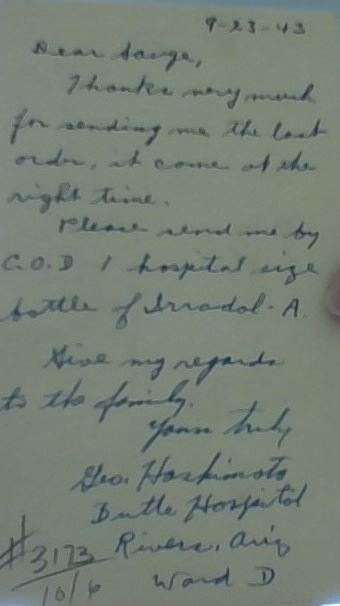 9-23-43
Dear Sauge,
Thanks very much
for sending me the last
order, it come at the
right time.
Please send me by
C.O.D 1 hospital size
bottle of Irradol-A.
Give my regards
to the family.
Yours truly
Geo. Hashimoto
Butte Hospital
Rivers, Ariz
Ward D
#3173
10/6